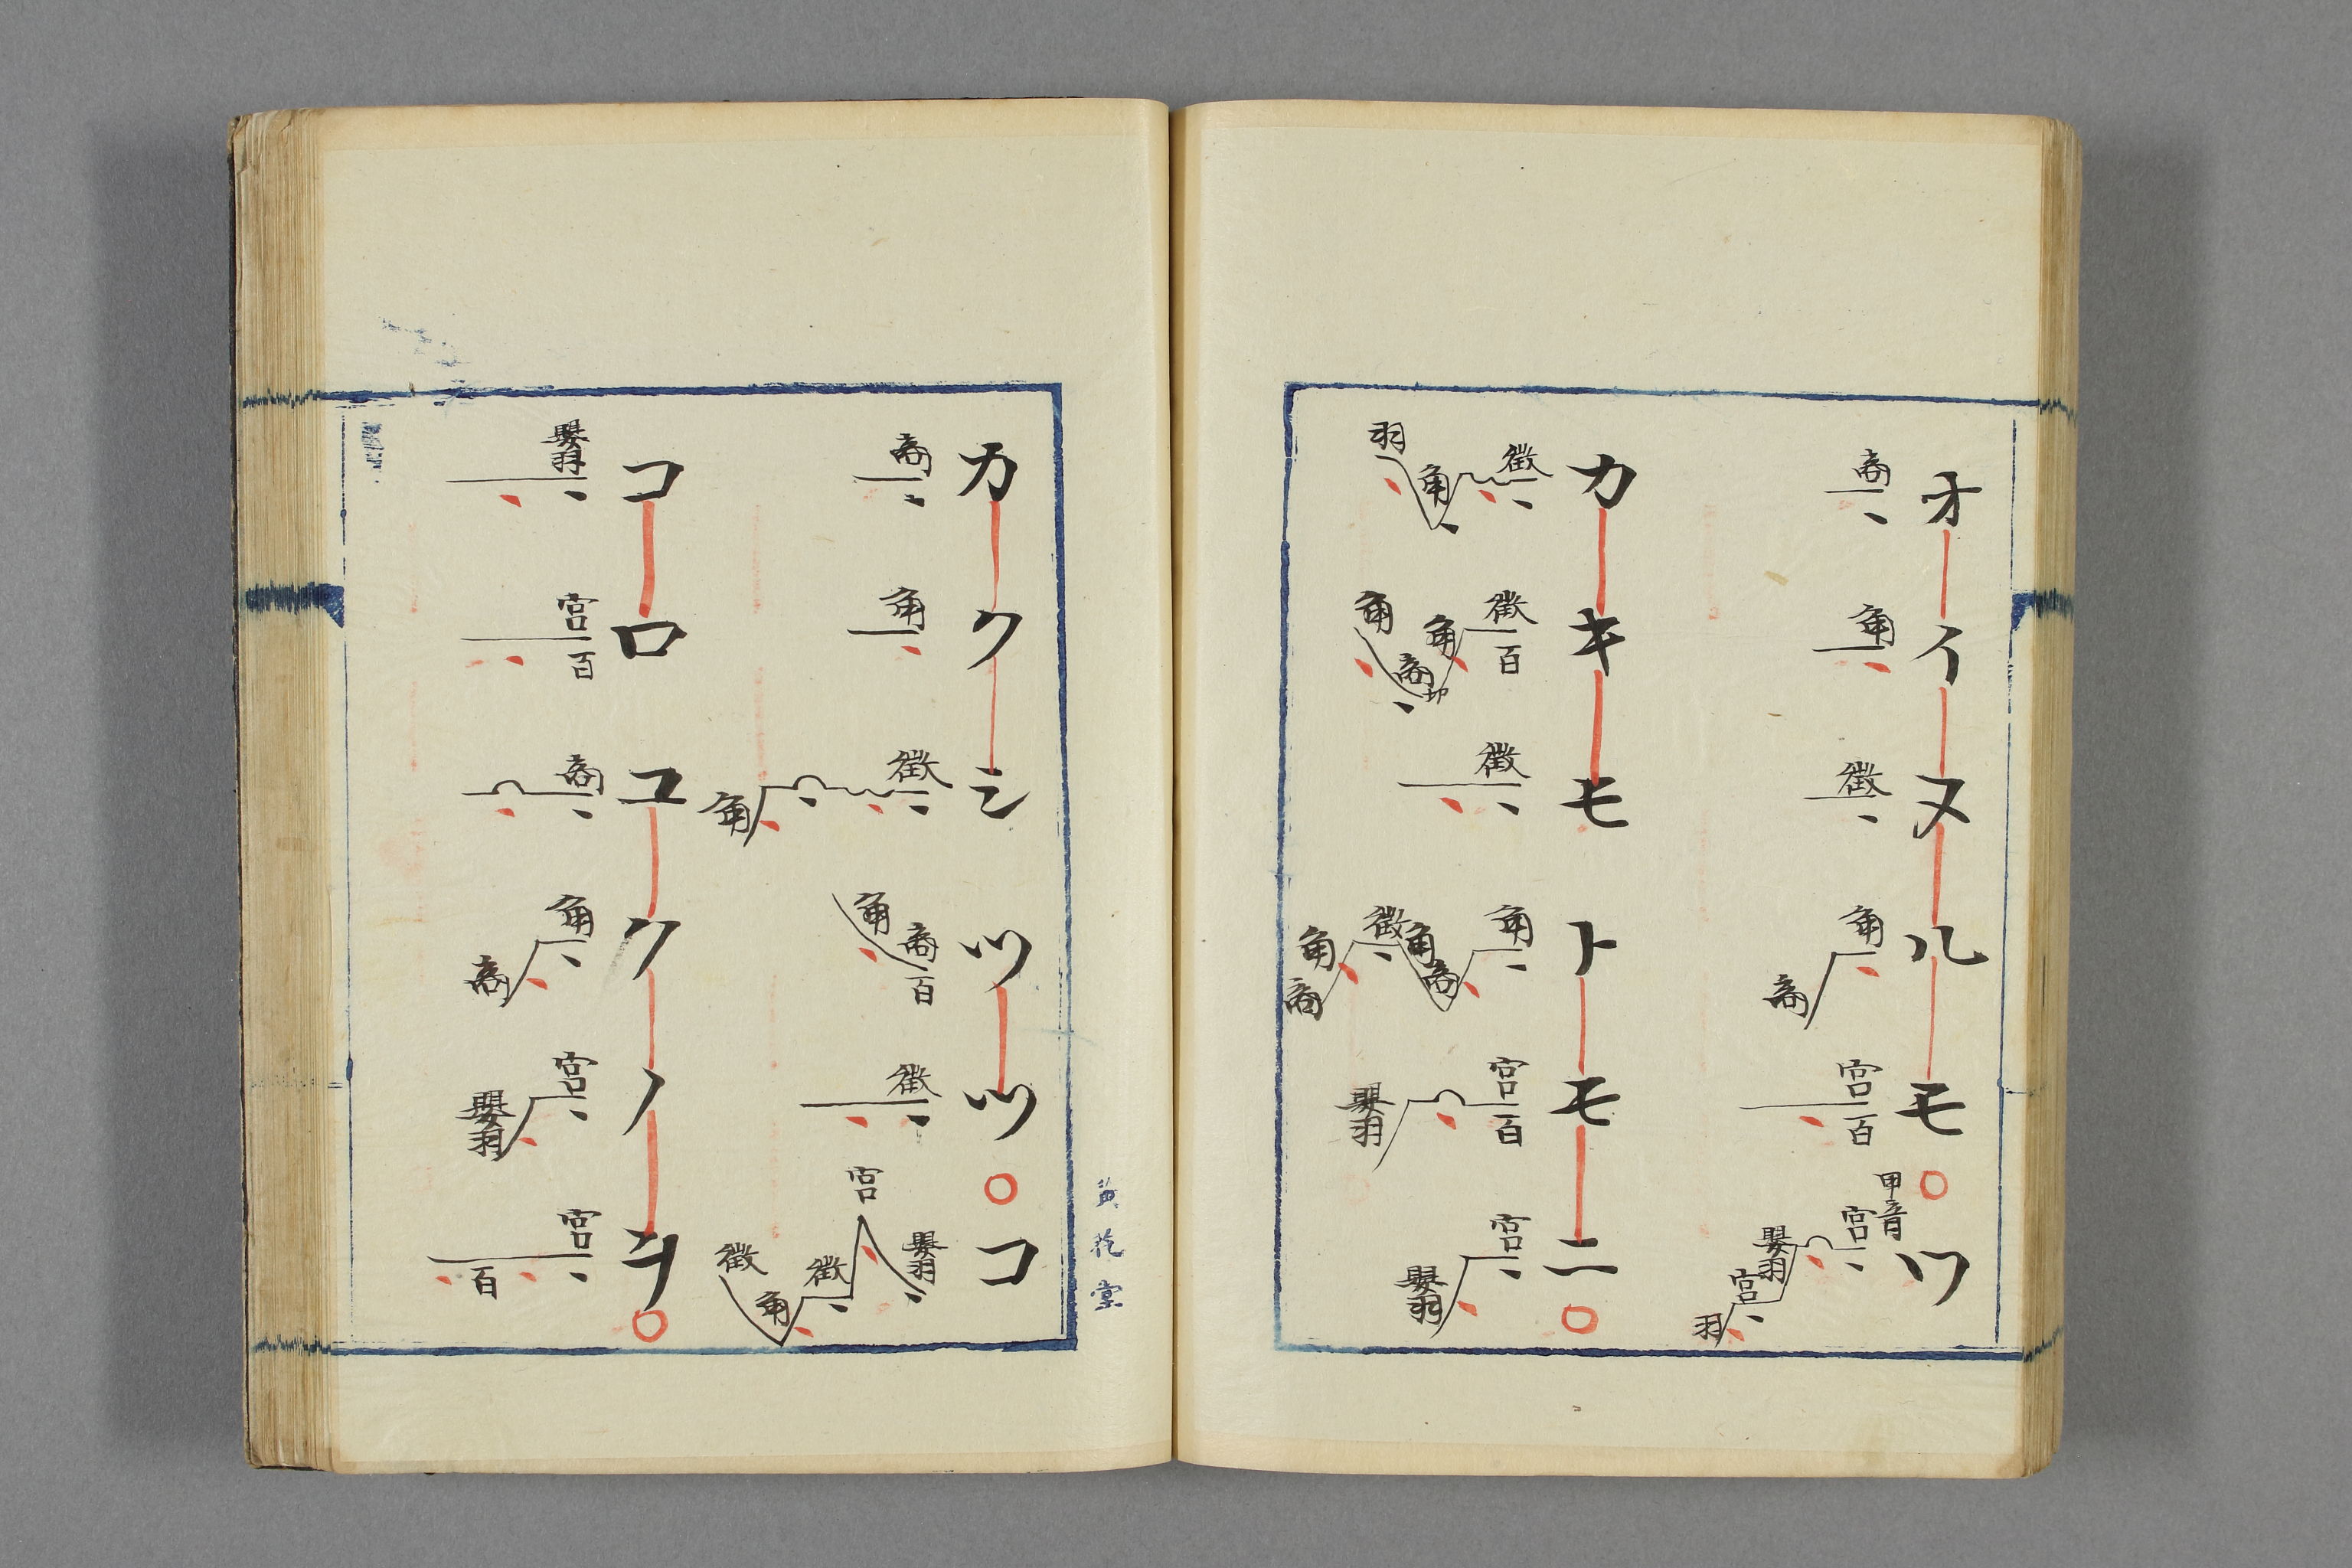 オイヌルモ○ツ
商
角
徵
角 商
宮 百
甲音
宮 嬰羽 宮 羽
カキモトモニ○
徵 角 羽
徵 百 角 商 角
徵
角 商 角 徵 角 商
宮 百 嬰羽
宮 嬰羽
カクシツツ○コ
商
角
徵 角
商 百 角
徵
嬰羽 宮 徵 角 徵
コロユクノヲ○
嬰羽
宮 百
商
角 商
宮 嬰羽
宮 百